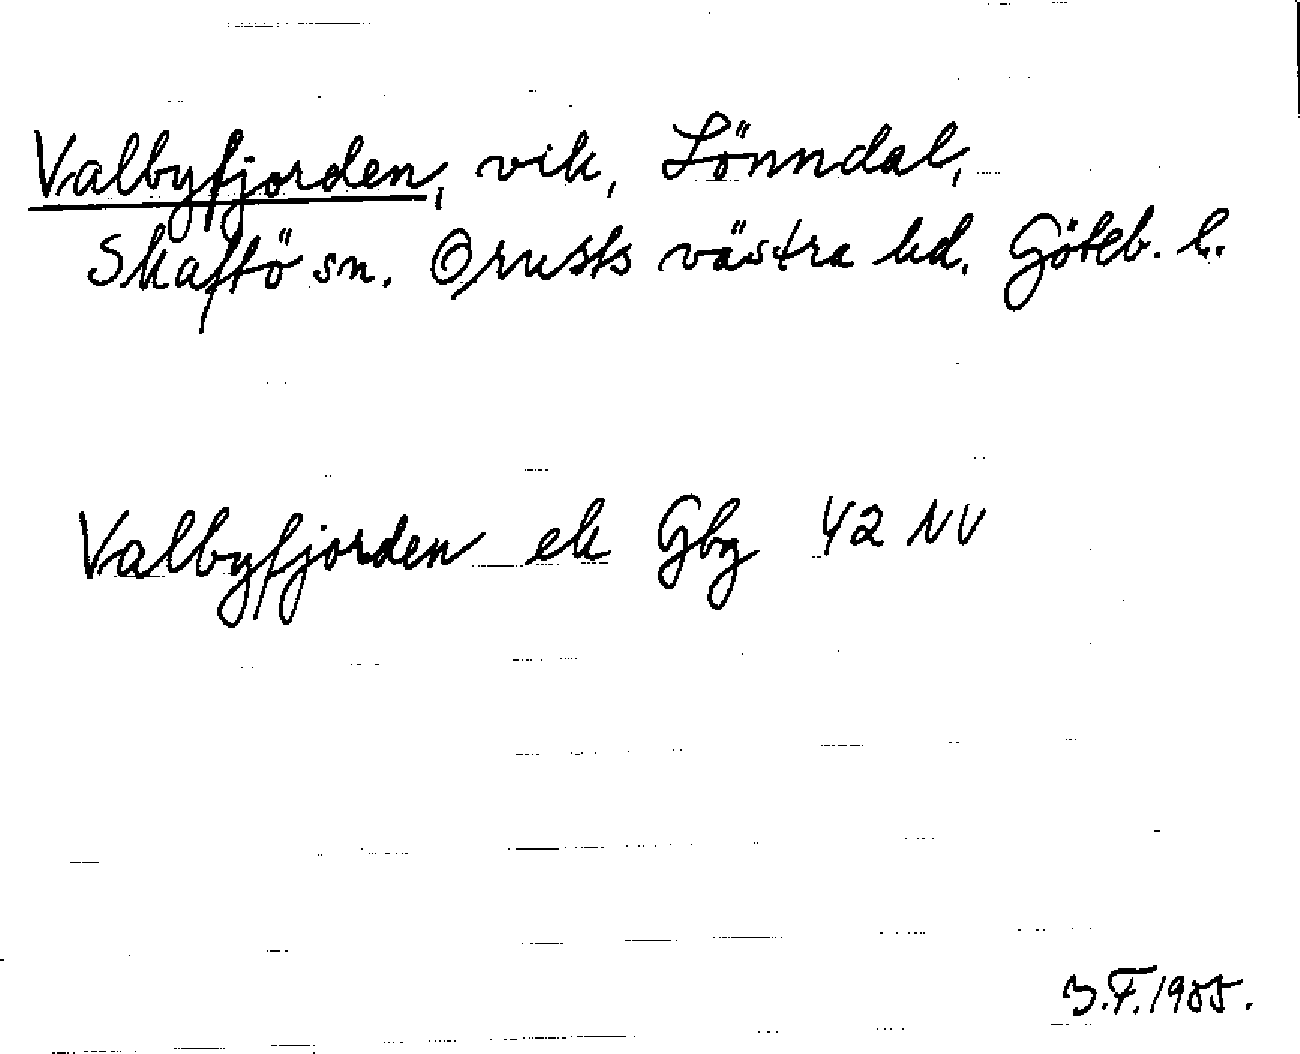 Valbyfjorden, vik, Lönndal,
Skaftö sn. Orusts västra hd. Göteb. l.
Valbyfjorden ek Gbg 42 NV